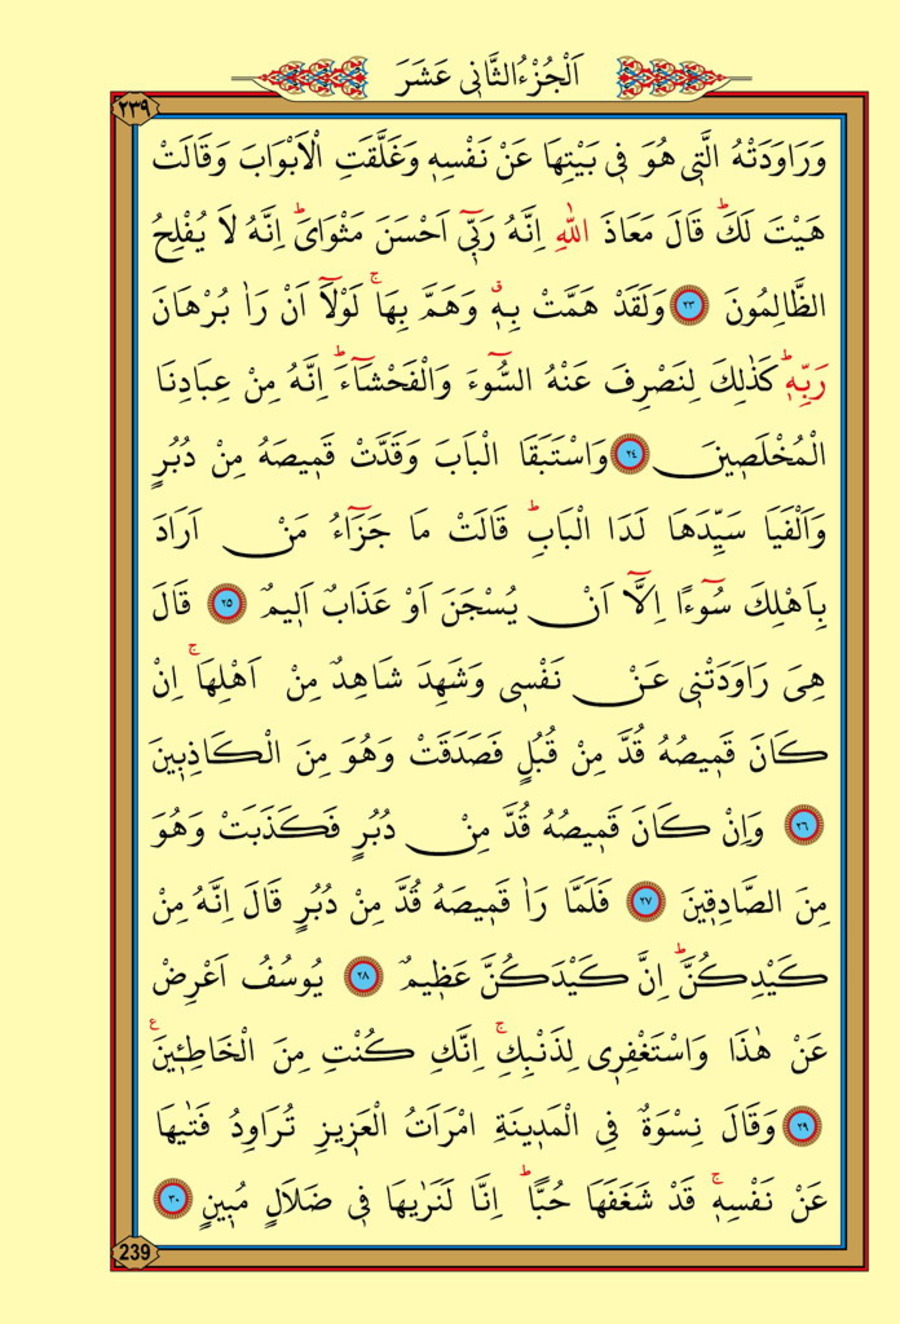 اَلْجُزْءُ الثَّانٖى عَشَرَ
٢٣٩
وَرَاوَدَتْهُ الَّتٖى هُوَ فٖى بَيْتِهَا عَنْ نَفْسِهٖ وَغَلَّقَتِ الْاَبْوَابَ وَقَالَتْ
هَيْتَ لَكَؕ قَالَ مَعَاذَ اللّٰهِ اِنَّهُ رَبّٖٓى اَحْسَنَ مَثْوَاىَؕ اِنَّهُ لَا يُفْلِحُ
الظَّالِمُونَ ﴿٢٣﴾ وَلَقَدْ هَمَّتْ بِهٖۗ وَهَمَّ بِهَاۚ لَوْلَآ اَنْ رَاٰ بُرْهَانَ
رَبِّهٖؕ كَذٰلِكَ لِنَصْرِفَ عَنْهُ السُّٓوءَ وَالْفَحْشَآءَؕ اِنَّهُ مِنْ عِبَادِنَا
الْمُخْلَصٖينَ ﴿٢٤﴾ وَاسْتَبَقَا الْبَابَ وَقَدَّتْ قَمٖيصَهُ مِنْ دُبُرٍ
وَاَلْفَيَا سَيِّدَهَا لَدَا الْبَابِؕ قَالَتْ مَا جَزَآءُ مَنْ اَرَادَ
بِاَهْلِكَ سُٓوءًا اِلَّآ اَنْ يُسْجَنَ اَوْ عَذَابٌ اَلٖيمٌ ﴿٢٥﴾ قَالَ
هِىَ رَاوَدَتْنٖى عَنْ نَفْسٖى وَشَهِدَ شَاهِدٌ مِنْ اَهْلِهَاۚ اِنْ
كَانَ قَمٖيصُهُ قُدَّ مِنْ قُبُلٍ فَصَدَقَتْ وَهُوَ مِنَ الْكَاذِبٖينَ
﴿٢٦﴾ وَاِنْ كَانَ قَمٖيصُهُ قُدَّ مِنْ دُبُرٍ فَكَذَبَتْ وَهُوَ
مِنَ الصَّادِقٖينَ ﴿٢٧﴾ فَلَمَّا رَاٰ قَمٖيصَهُ قُدَّ مِنْ دُبُرٍ قَالَ اِنَّهُ مِنْ
كَيْدِكُنَّؕ اِنَّ كَيْدَكُنَّ عَظٖيمٌ ﴿٢٨﴾ يُوسُفُ اَعْرِضْ
عَنْ هٰذَا وَاسْتَغْفِرٖى لِذَنْبِكِۚ اِنَّكِ كُنْتِ مِنَ الْخَاطِـٖٔينَ ع
﴿٢٩﴾ وَقَالَ نِسْوَةٌ فِى الْمَدٖينَةِ امْرَاَتُ الْعَزٖيزِ تُرَاوِدُ فَتٰيهَا
عَنْ نَفْسِهٖۚ قَدْ شَغَفَهَا حُبًّاؕ اِنَّا لَنَرٰيهَا فٖى ضَلَالٍ مُبٖينٍ ﴿٣٠﴾
239